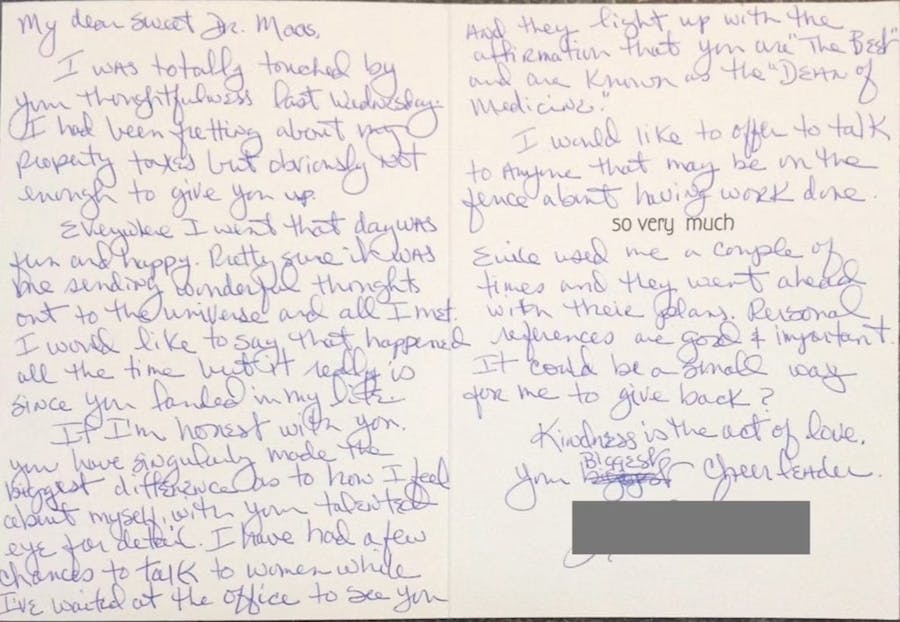 My dear sweet Dr. Maas,
I was totally touched by
your thoughtfulness last Wednesday.
I had been fretting about my
property taxes but obviously not
enough to give you up.
Everywhere I went that day was
fun and happy. Pretty sure it was
me sending wonderful thoughts
out to the universe and all I met.
I would like to say that happened
all the time but it really is
since you landed in my life.
If I'm honest with you,
you have singularly made the
biggest difference as to how I feel
about myself, with your talented
eye for detail. I have had a few
chances to talk to women while
I've waited at the office to see you
And they light up with the
affirmation that you are "The Best"
and are known as the "Dean of
Medicine."
I would like to offer to talk
to anyone that may be on the
fence about having work done.
so very much
used me a couple of
times and they went ahead
with their plans. Personal
references are good & important.
It could be a small way
for me to give back?
Kindness is the act of love.
Your Biggest Cheerleader.